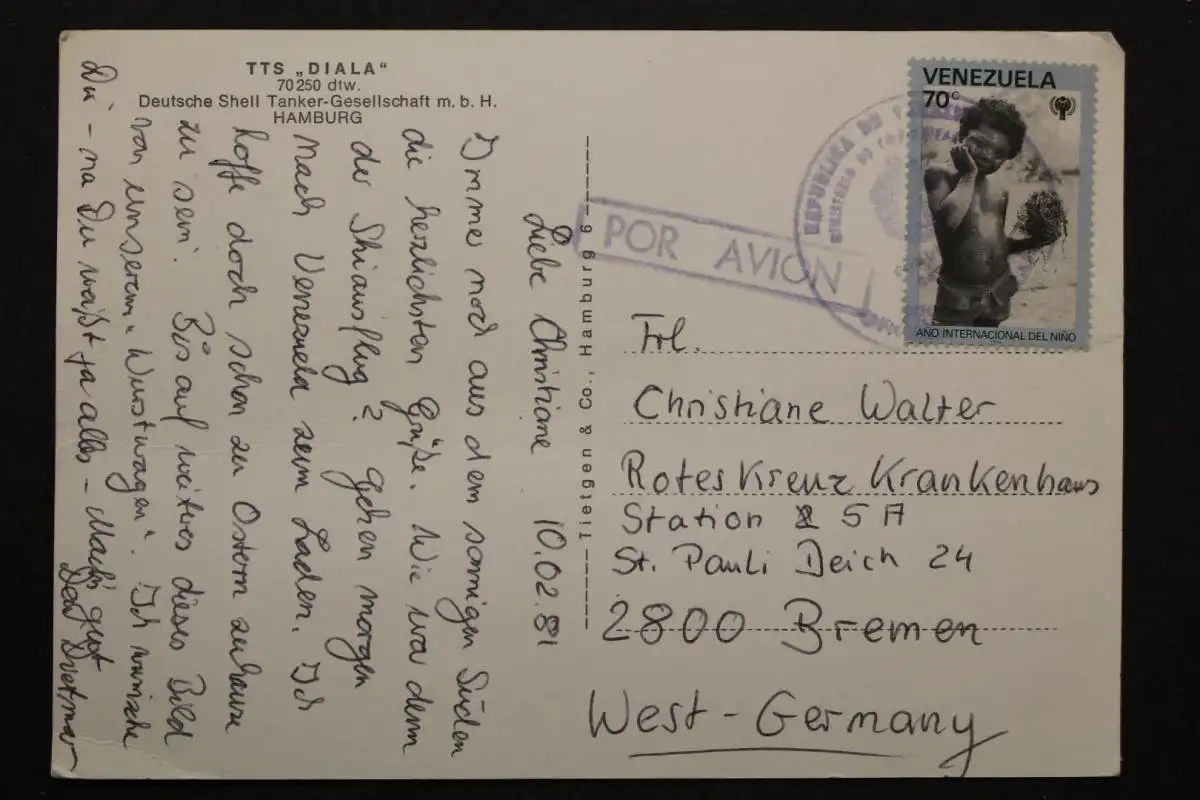 TTS „DIALA“
70250 dtw.
Deutsche Shell Tanker-Gesellschaft m. b. H.
HAMBURG
Liebe Christiane 10.02.81
Immer noch aus dem sonnigen Süden
die herzlichsten Grüße. Wie war denn
der Skiausflug? Gehen morgen
nach Venezuela zum Laden. Ich
hoffe doch schon zu Ostern zuhause
zu sein. Bis auf weiteres dieses Bild
von unserem „Wurstwagen“. Ich wünsche
Dir – na Du weißt ja alles – Mach's gut
Dein Dietmar
Tietgen & Co., Hamburg 6
POR AVION
REPUBLICA DE
MINISTERIO DE
VENEZUELA
70c
AÑO INTERNACIONAL DEL NIÑO
Frl.
Christiane Walter
Rotes Kreuz Krankenhaus
Station 5A
St. Pauli Deich 24
2800 Bremen
West-Germany